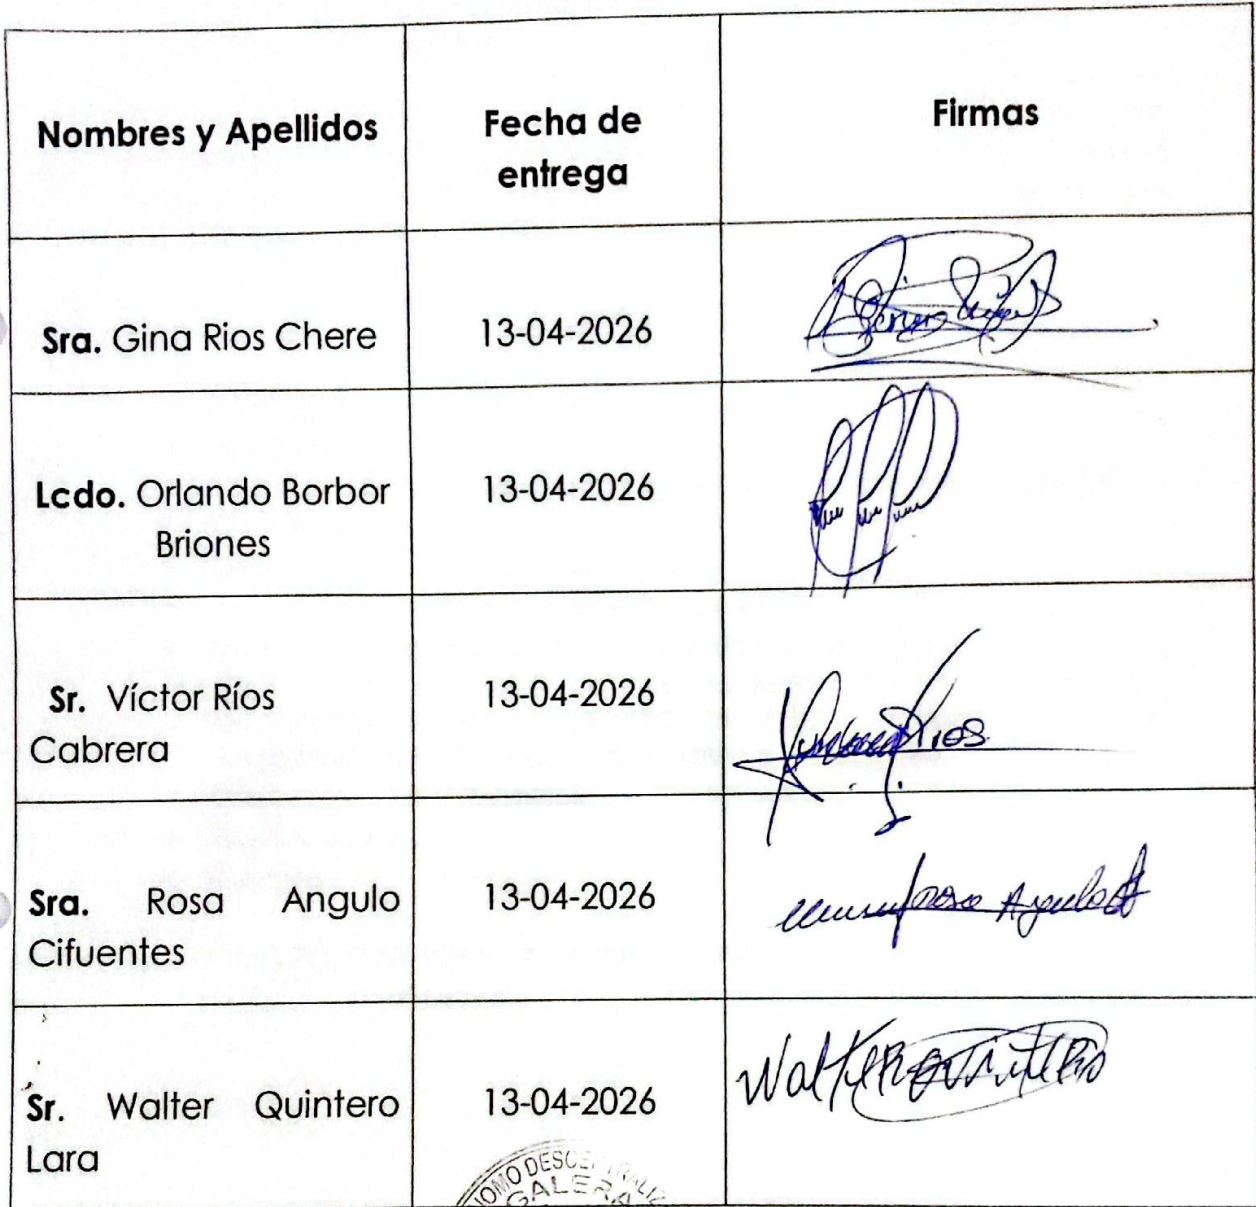 Nombres y Apellidos
Fecha de
entrega
Firmas
Sra. Gina Rios Chere
13-04-2026
Lcdo. Orlando Borbor
Briones
13-04-2026
Sr. Víctor Ríos
Cabrera
13-04-2026
Rios
Sra. Rosa Angulo
Cifuentes
13-04-2026
Rosa Angulo
Sr. Walter Quintero
Lara
13-04-2026
Walter Quintero
GALERA